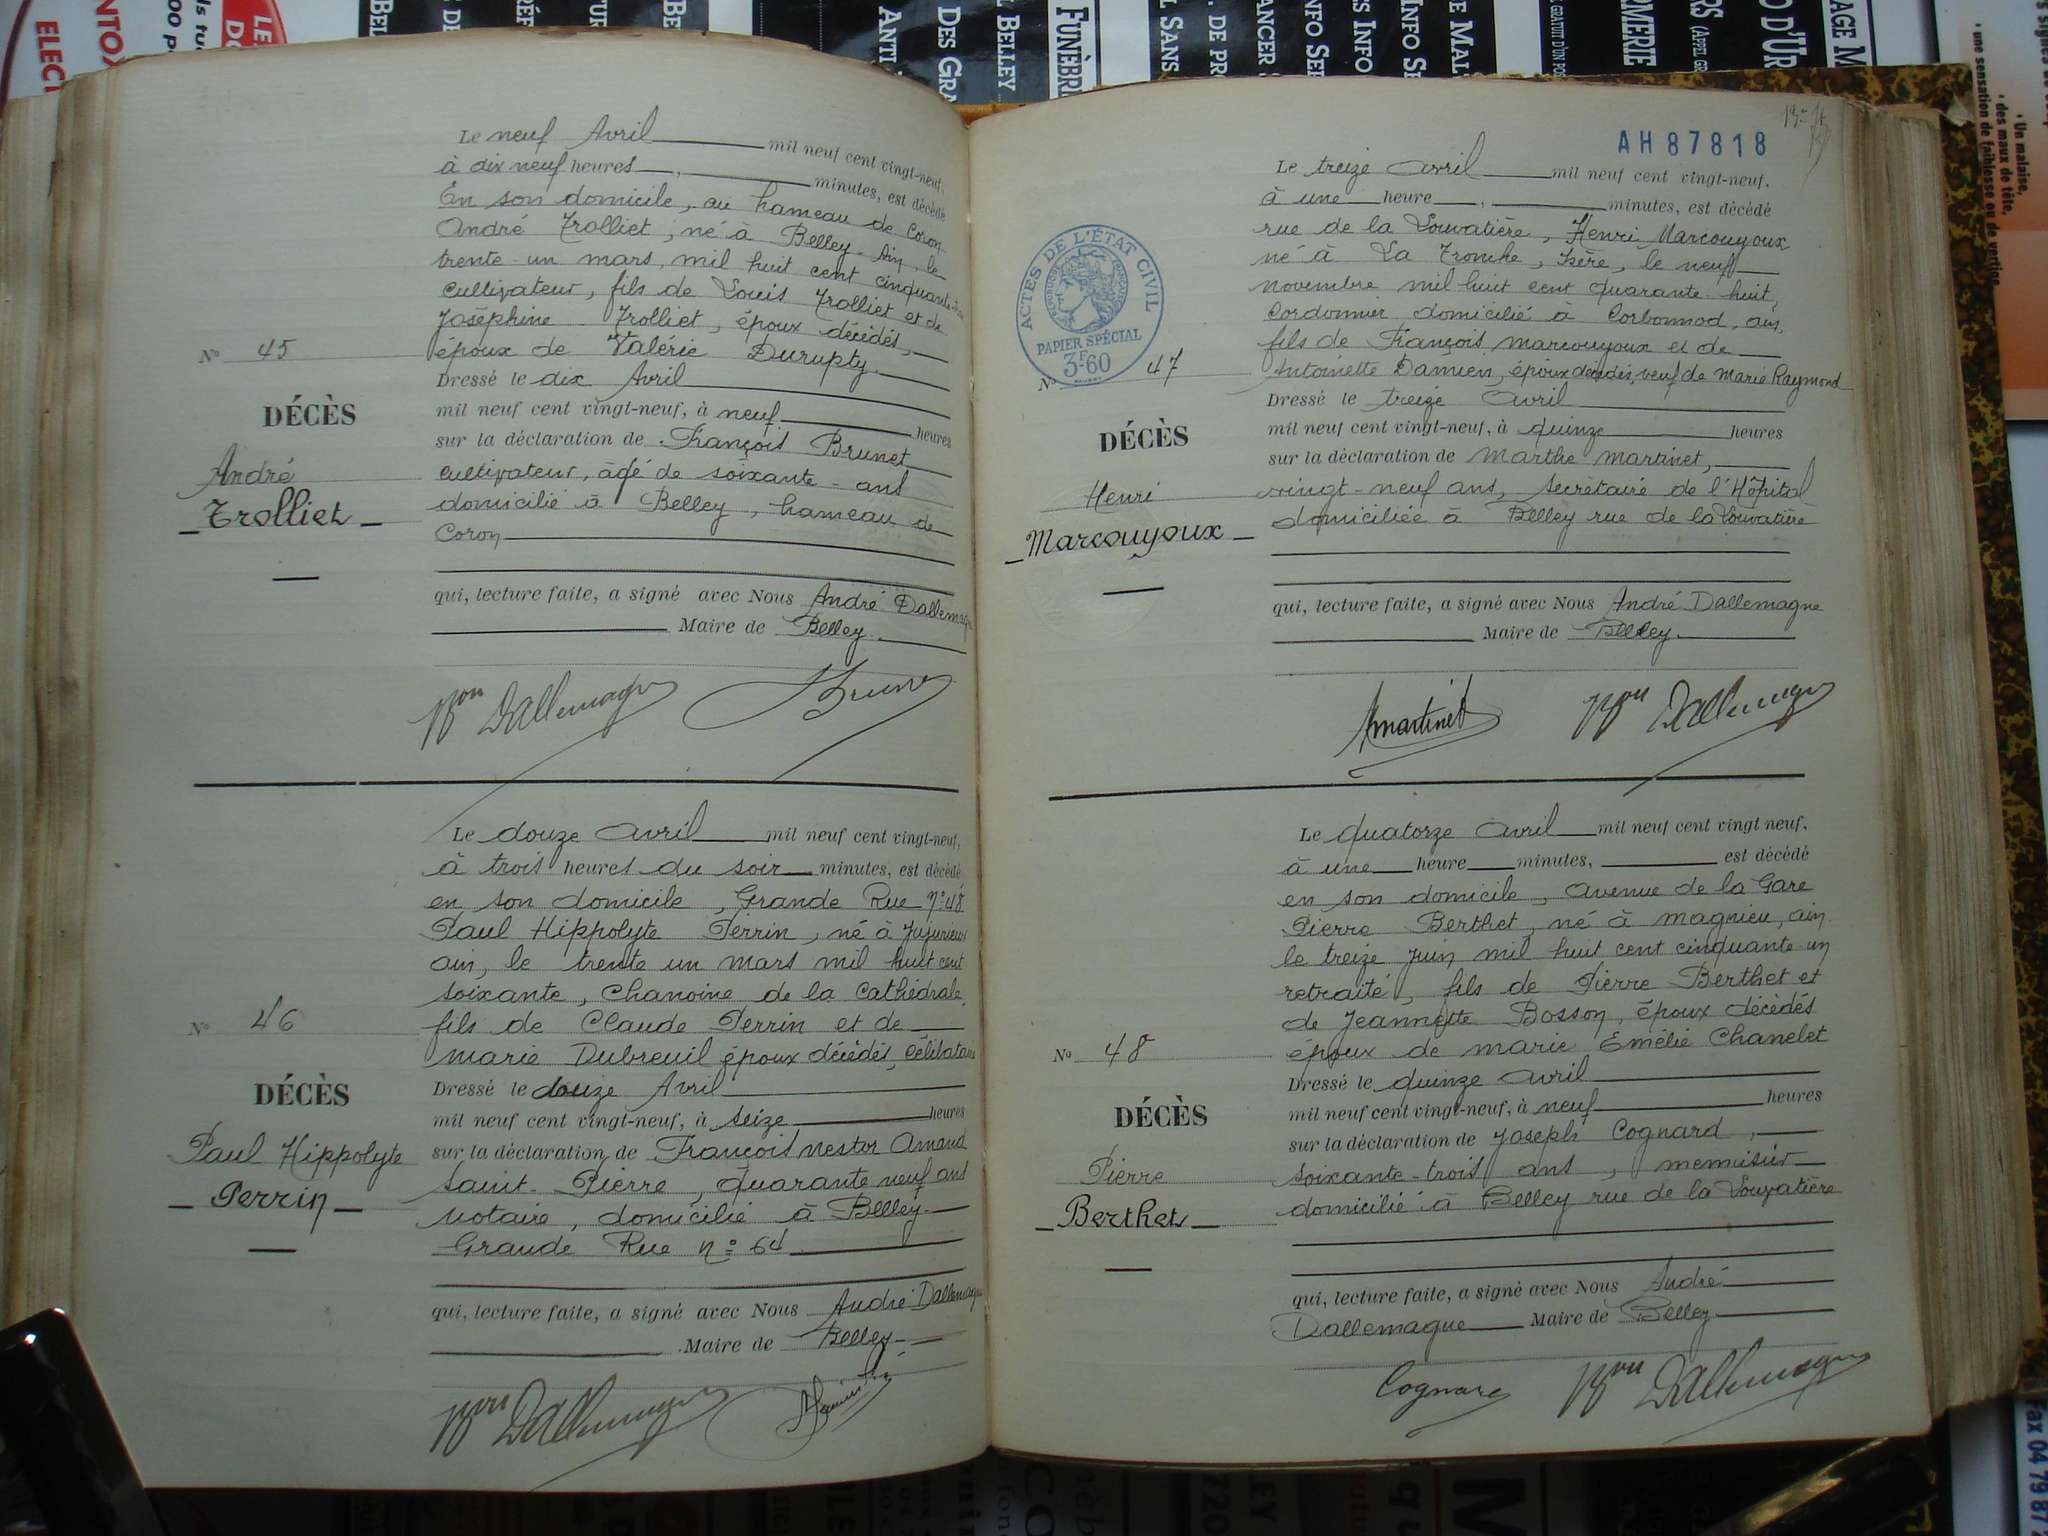 Le neuf Avril mil neuf cent vingt-neuf,
à dix neuf heures, minutes, est décédé
En son domicile, au hameau de Coron
André Trolliet, né à Belley, Ain, le
trente-un mars, mil huit cent cinquante
cultivateur, fils de Louis Trolliet et de
Joséphine Trolliet, époux décédés,
époux de Valérie Durupty.
Dressé le dix Avril
mil neuf cent vingt-neuf, à neuf heures
sur la déclaration de François Brunet,
cultivateur, âgé de soixante-ans
domicilié à Belley, hameau de
Coron
qui, lecture faite, a signé avec Nous André Dallemagne
Maire de Belley.
Bon Dallemagne Brunet
N° 45
DÉCÈS
André
Trolliet
Le douze avril mil neuf cent vingt-neuf,
à trois heures du soir minutes, est décédé
en son domicile, Grande Rue n° 48
Paul Hippolyte Perrin, né à Jujurieux
ain, le trente un mars mil huit cent
soixante, Chanoine de la Cathédrale,
fils de Claude Perrin et de
marie Dubreuil époux décédés, célibataire
Dressé le douze Avril
mil neuf cent vingt-neuf, à seize heures
sur la déclaration de François nestor Amand
Saint-Pierre, quarante neuf ans
notaire, domicilié à Belley
Grande Rue n° 64
qui, lecture faite, a signé avec Nous André Dallemagne
Maire de Belley
Bon Dallemagne
N° 46
DÉCÈS
Paul Hippolyte
Perrin
AH 87818
Le treize avril mil neuf cent vingt-neuf,
à une heure, minutes, est décédé
rue de la Louvatière, Henri Marcouyoux
né à La Tronche, Isère, le neuf
novembre mil huit cent quarante huit,
Cordonnier domicilié à Corbonod, ain,
fils de François Marcouyoux et de
Antoinette Damien, époux décédés, veuf de Marie Raymond
Dressé le treize avril
mil neuf cent vingt-neuf, à quinze heures
sur la déclaration de Marthe Martinet,
vingt-neuf ans, secrétaire de l'Hôpital
domiciliée à Belley rue de la Louvatière
qui, lecture faite, a signé avec Nous André Dallemagne
Maire de Belley.
Martinet Bon Dallemagne
ACTES DE L'ÉTAT CIVIL
RÉPUBLIQUE FRANÇAISE
PAPIER SPÉCIAL
3F60
N° 47
DÉCÈS
Henri
Marcouyoux
Le quatorze avril mil neuf cent vingt neuf,
à une heure minutes, est décédé
en son domicile, avenue de la Gare
Pierre Berthet, né à magnieu, ain
le treize juin mil huit cent cinquante un
retraité, fils de Pierre Berthet et
de Jeannette Bosson, époux décédés
époux de marie Emélie Chanelet
Dressé le quinze avril
mil neuf cent vingt-neuf, à neuf heures
sur la déclaration de Joseph Cognard,
soixante-trois ans, menuisier
domicilié à Belley rue de la Louvatière
qui, lecture faite, a signé avec Nous André
Dallemagne Maire de Belley
Cognard Bon Dallemagne
N° 48
DÉCÈS
Pierre
Berthet